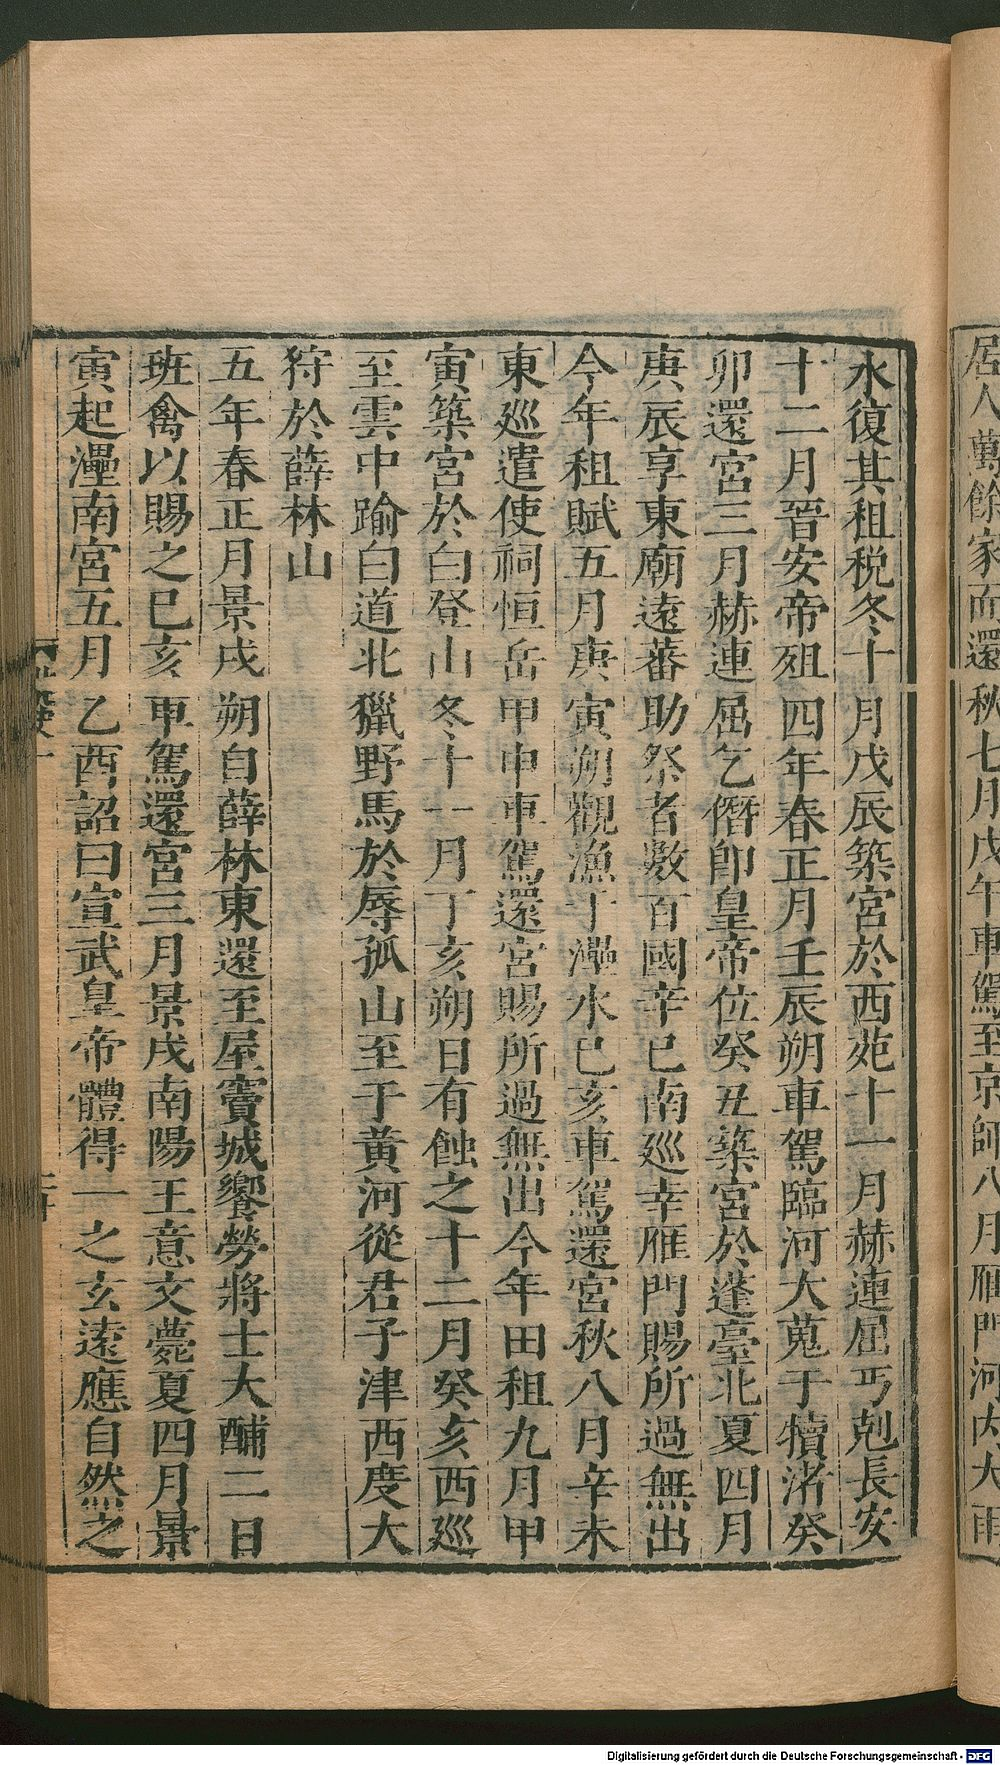 居人萬餘家而還秋七月戊午車駕至京師八月雁門河內大雨
水復其租税冬十月戊辰築宮於西苑十一月赫連屈丐剋長安
十二月晉安帝殂四年春正月壬辰朔車駕臨河大蒐于犢渚癸
卯還宮三月赫連屈乞僭卽皇帝位癸丑築宮於蓬臺北夏四月
庚辰享東廟遠蕃助祭者數百國辛巳南巡幸雁門賜所過無出
今年租賦五月庚寅朔觀漁于㶟水己亥車駕還宮秋八月辛未
東巡遣使祠恒岳甲申車駕還宮賜所過無出今年田租九月甲
寅築宮於白登山冬十一月丁亥朔日有蝕之十二月癸亥西巡
至雲中踰白道北獵野馬於辱孤山至于黃河從君子津西度大
狩於薛林山
五年春正月景戌朔自薛林東還至屋竇城饗勞將士大酺二日
班禽以賜之己亥車駕還宮三月景戌南陽王意文薨夏四月景
寅起㶟南宮五月乙酉詔曰宣武皇帝體得一之玄遠應自然之
Digitalisierung gefördert durch die Deutsche Forschungsgemeinschaft - DFG